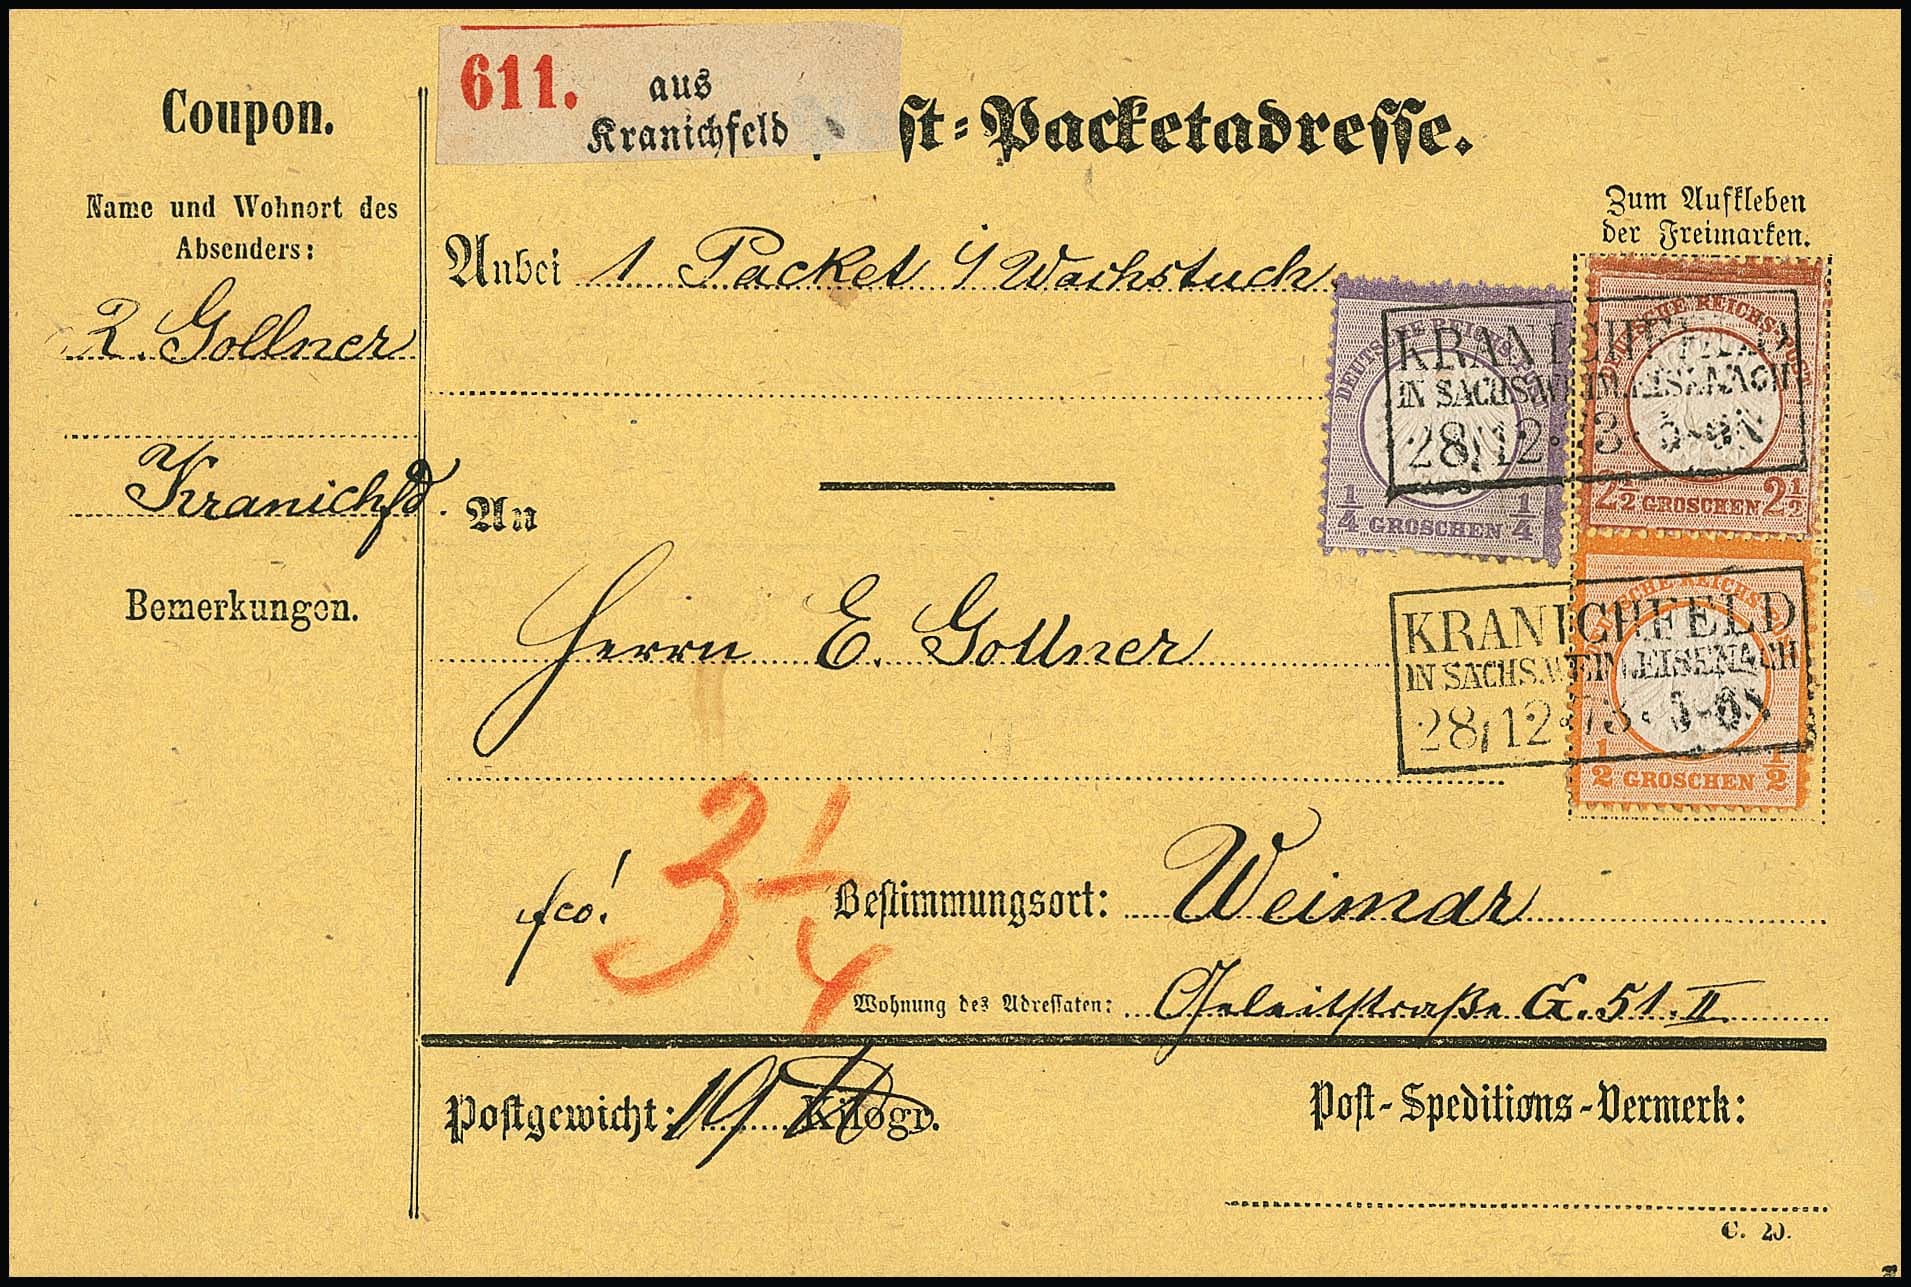 Coupon.
Name und Wohnort des
Absenders:
Gollner
Kranichfd.
Bemerkungen.
611. aus
Kranichfeld
st-Packetadresse.
Zum Aufkleben
der Freimarken.
Anbei 1 Packet i/ Wachstuch.
DEUTSCHE REICHS-POST
1/4 GROSCHEN 1/4
DEUTSCHE REICHS-POST
2 1/2 GROSCHEN 2 1/2
KRANICHFELD
IN SACHS.WEIM.EISENACH
28/12. 73.
An
Herrn E. Gollner
DEUTSCHE REICHS-POST
1/2 GROSCHEN 1/2
KRANICHFELD
IN SACHS.WEIM.EISENACH
28/12.73.
fco! 3 1/4
Bestimmungsort: Weimar
Wohnung des Adressaten: Geleitstraße E. 51. II
Postgewicht: 19 ℔ Kilogr.
Post-Speditions-Vermerk:
C. 20.